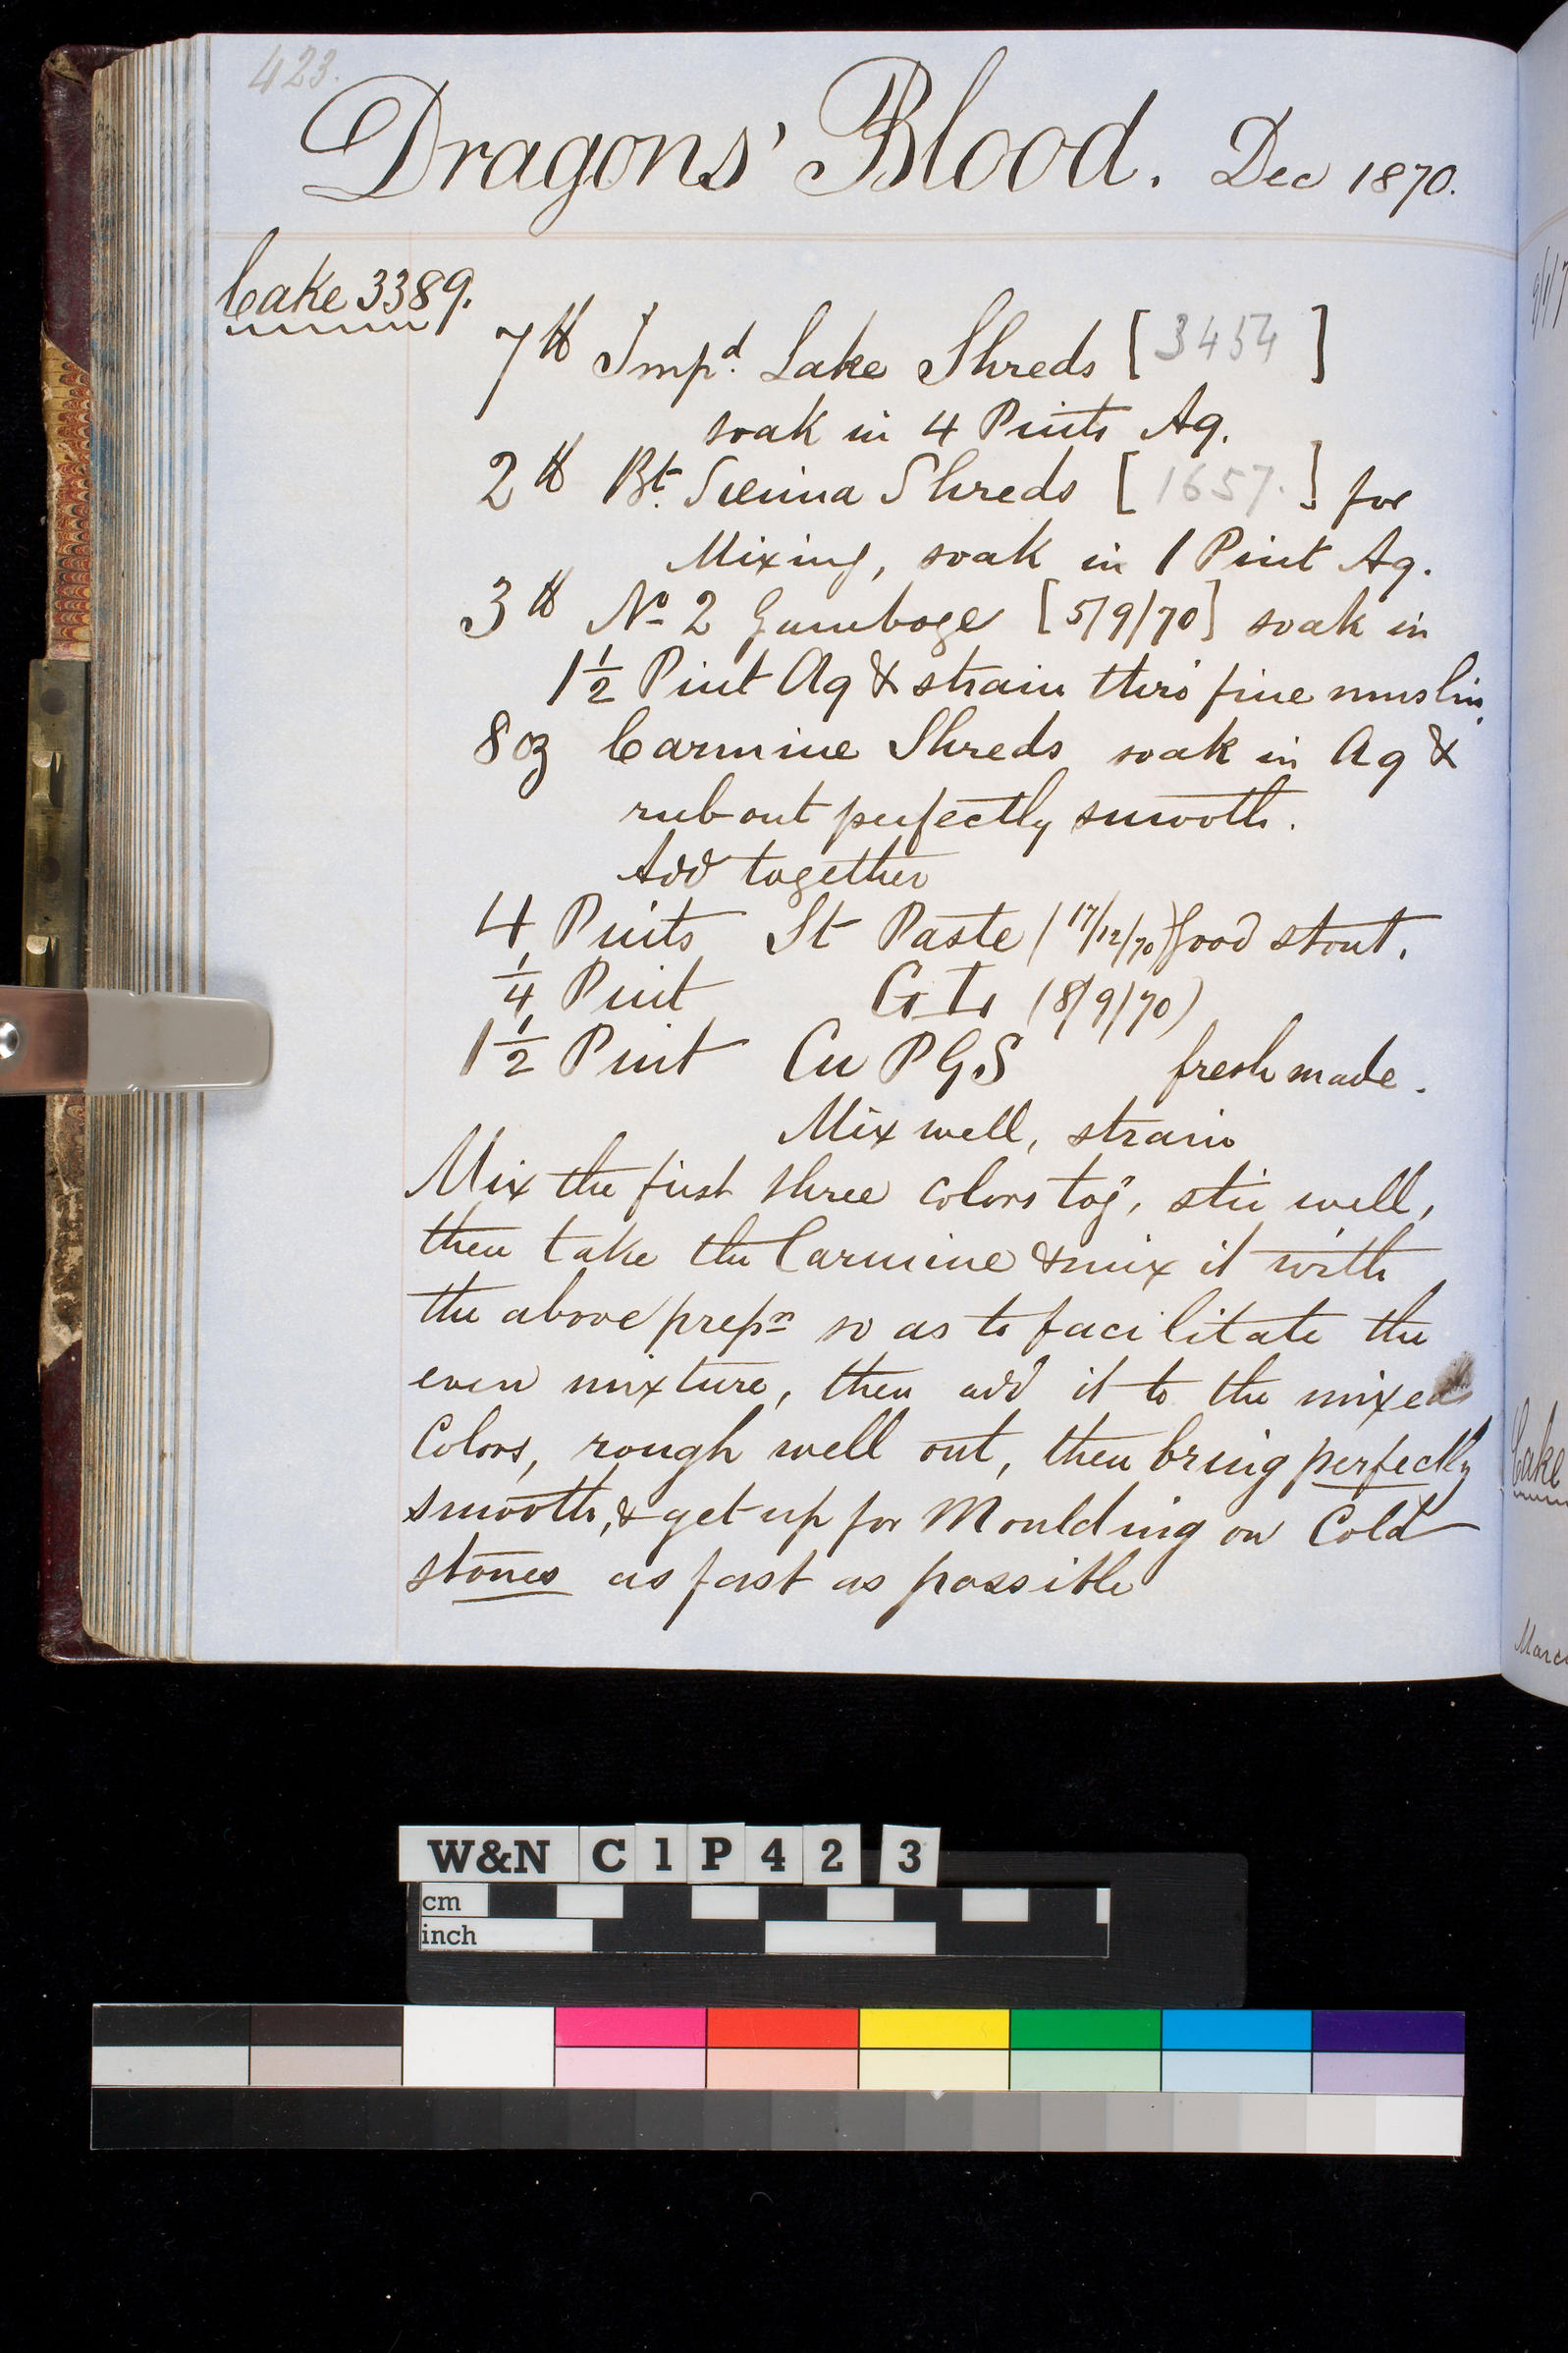 423.
Dragons' Blood. Dec 1870.
Cake 3389.
7 ℔ Impd. Lake Shreds [3454]
soak in 4 Pints Aq.
2 ℔ Bt. Sienna Shreds [1657.] for
Mixing, soak in 1 Pint Aq.
3 ℔ No 2 Gamboge [5/9/70] soak in
1 1/2 Pint Aq & strain thro' fine muslin.
8 oz Carmine Shreds soak in Aq &
rub out perfectly smooth.
Add together
4 Pints St Paste (17/12/70) Good stout.
1/4 Pint (8/9/70)
1 1/2 Pint Cu P G.S fresh made.
Mix well, strain
Mix the first three colors tog, stir well,
then take the Carmine & mix it with
the above prepn so as to facilitate the
even mixture, then add it to the mixed
Colors, rough well out, then bring perfectly
smooth, & get up for Moulding on Cold
stones as fast as possible
Cake
W&N C1P423
cm
inch